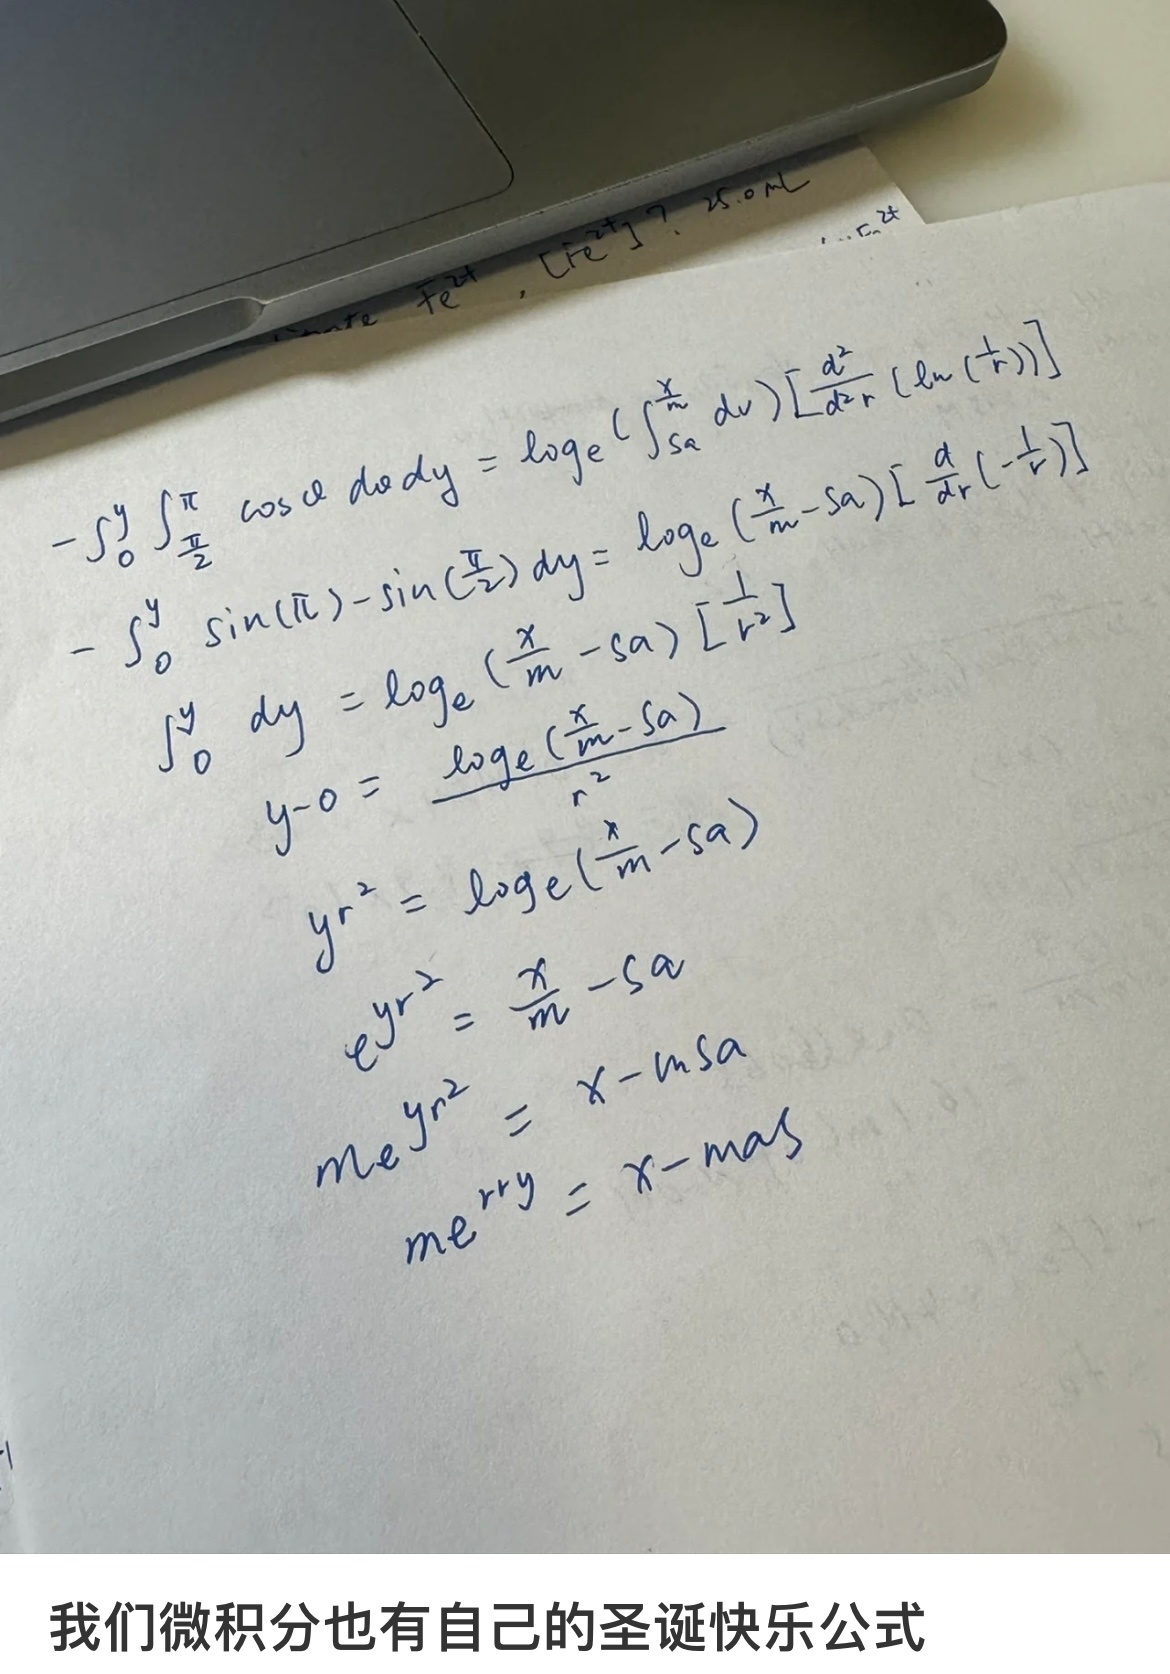 Fe²⁺, [Fe²⁺]? 25.0 mL
-∫₀^y ∫_{π/2}^π cosθ dθdy = logₑ(∫_{sa}^{x/m} dv)[d²/d²r (ln(1/r))]
-∫₀^y sin(π)-sin(π/2) dy = logₑ(x/m-sa)[d/dr(-1/r)]
∫₀^y dy = logₑ(x/m-sa)[1/r²]
y-0 = logₑ(x/m-sa)/r²
yr² = logₑ(x/m-sa)
e^{yr²} = x/m-sa
me^{yr²} = x-msa
me^{rry} = x-mas
我们微积分也有自己的圣诞快乐公式